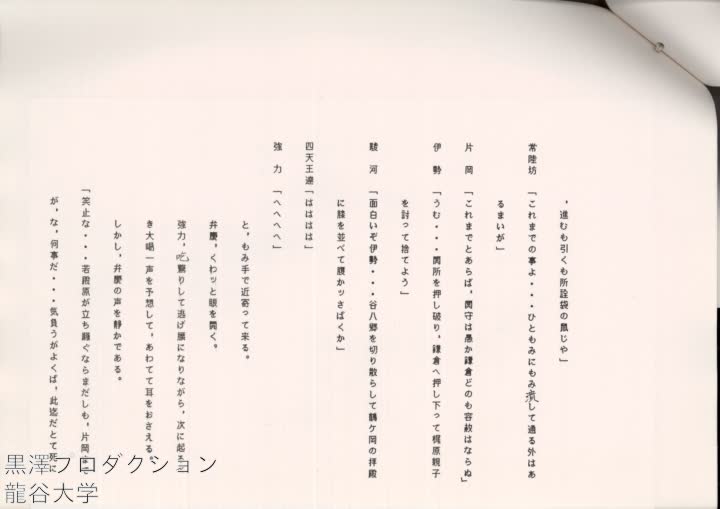 、進むも引くも所詮袋の鼠じや」
常陸坊「これまでの事よ・・・ひともみにもみ潰して通る外はあ
るまいが」
片　岡「これまでとあらば、関守は愚か鎌倉どのも容赦はならぬ」
伊　勢「うむ・・・関所を押し破り、鎌倉へ押し下って梶原親子
を討って捨てよう」
駿　河「面白いぞ伊勢・・・谷八郷を切り散らして鶴ケ岡の拝殿
に膝を並べて腹かッさばくか」
四天王達「はははは」
強　力「へへへへ」
と、もみ手で近寄って来る。
弁慶、くわッと眼を開く。
強力、吃驚りして逃げ腰になりながら、次に起る
き大喝一声を予想して、あわてて耳をおさえる。
しかし、弁慶の声を静かである。
「笑止な・・・若殿原が立ち騒ぐならまだしも、片岡
が、な、何事だ・・・気負うがよくば、此迄だとて死に
黒澤プロダクション
龍谷大学